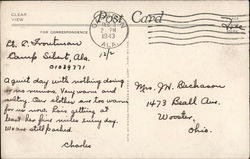 CLEAR
VIEW
Post Card
FOR CORRESPONDENCE
2 PM
1943
ALA.
Lt. D. Troutman
Camp Sibert, Ala.
01039771
A quiet day with nothing doing
no rumors. Very warm and
sultry. Our clothes are too warm
for us now. Lois getting at
least her five miles every day.
We are still packed.
Charles
Mrs. J.H. Buchanan
1473 Beall Ave.
Wooster,
Ohio.